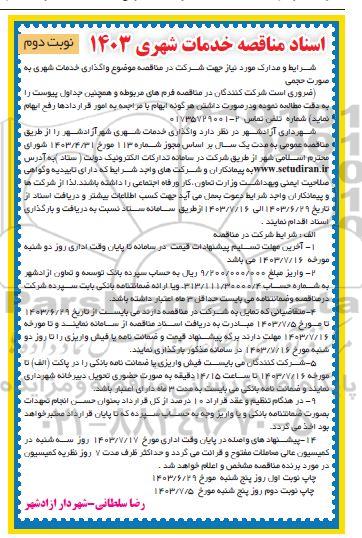 نوبت دوم
اسناد مناقصه خدمات شهری ۱۴۰۳
شرایط و مدارک مورد نیاز جهت شرکت در مناقصه موضوع واگذاری خدمات شهری به
صورت حجمی
(ضروری است شرکت کنندگان در مناقصه فرم های مربوطه و همچنین جداول پیوست را
به دقت مطالعه نموده ودرصورت داشتن هرگونه ابهام با مراجعه به امور قراردادها رفع ابهام
نماید) شماره تلفن تماس ۲-۰۱۷۳۵۷۲۹۰۰۱
شهرداری آزادشهر در نظر دارد واگذاری خدمات شهری شهر آزادشهر را از طریق
مناقصه عمومی به مدت یک سال بر اساس مجوز شماره ۱۱۳ مورخ ۱۴۰۳/۴/۳۱ شورای
محترم اسلامی شهر از طریق شرکت در سامانه تدارکات الکترونیک دولت ( ستاد )به آدرس
www.setudiran.ir به پیمانکاران و شرکت های واجد شرایط که دارای تاییدیه وگواهی
صلاحیت ایمنی وبهداشت وزارت تعاون ،کار ورفاه اجتماعی را داشته باشند.لذا از شرکت ها
و پیمانکاران واجد شرایط دعوت بعمل می آید جهت کسب اطلاعات بیشتر و دریافت اسناد از
تاریخ ۱۴۰۳/۶/۲۹ الی ۱۴۰۳/۷/۱۶ ازطریق سامانه ستاد نسبت به دریافت و بارگذاری
اسناد اقدام نمایند .
الف : شرایط شرکت در مناقصه
۱- آخرین مهلت تسلیم پیشنهادات قیمت در سامانه تا پایان وقت اداری روز دو شنبه
مورخه ۱۴۰۳/۷/۱۶ می باشد
۲- واریز مبلغ ۹/۲۰۰/۰۰۰/۰۰۰ ریال به حساب سپرده بانک توسعه و تعاون ازادشهر
به شماره حساب ۳۱۳/۱۱۱/۳۰۰۰۰/۴ ویا ارائه ضمانتنامه بانکی بابت سپرده شرکت
درمناقصه وضمانتنامه می بایست حداقل ۳ ماه اعتبار داشته باشد.
۴-متقاضیانی که تمایل به شرکت در مناقصه دارند می بایست از تاریخ ۱۴۰۳/۶/۲۹
تا مورخ ۱۴۰۳/۷/۵ مبادرت به دریافت اسناد مناقصه از سامانه نمایند و تا مورخه
۱۴۰۳/۷/۱۶ مهلت دارند برگه پیشنهاد قیمت و ضمانت نامه یا فیش واریزی را تا روز دو
شنبه مورخ ۱۴۰۳/۷/۱۶ در سامانه مذکور بارگذاری نمایند.
۵-شرکت کنندگان می بایست فیش واریزی یا ضمانت نامه بانکی را در پاکت (الف) تا
مورخه ۱۴۰۳/۷/۱۶ تا ساعت ۱۴/۱۵ دقیقه به صورت حضوری تحویل دبیرخانه شهرداری
نمایند و ضمانت نامه بانکی می بایست به مدت ۳ ماه دارای اعتبار باشد.
۹- در هنگام تنظیم و عقد قرارداد ۱۰ درصد از کل قرارداد بعنوان حسن انجام تعهدات
بصورت ضمانتنامه بانکی و یا واریز وجه به حساب سپرده که تا پایان قرارداد معتبر خواهد
بود اخذ می گردد.
۱۴-پیشنهاد های واصله در پایان وقت اداری مورخ ۱۴۰۳/۷/۱۷ روز سه شنبه در
کمیسیون عالی معاملات مفتوح و قرائت می گردد و حداکثر ظرف مدت ۷ روز نظریه کمیسیون
در مورد برنده مناقصه مشخص و اعلام خواهد شد .
چاپ نوبت اول روز پنج شنبه مورخ ۱۴۰۳/۶/۲۹
چاپ نوبت دوم روز پنج شنبه مورخ ۱۴۰۳/۷/۵
رضا سلطانی-شهردار ازادشهر